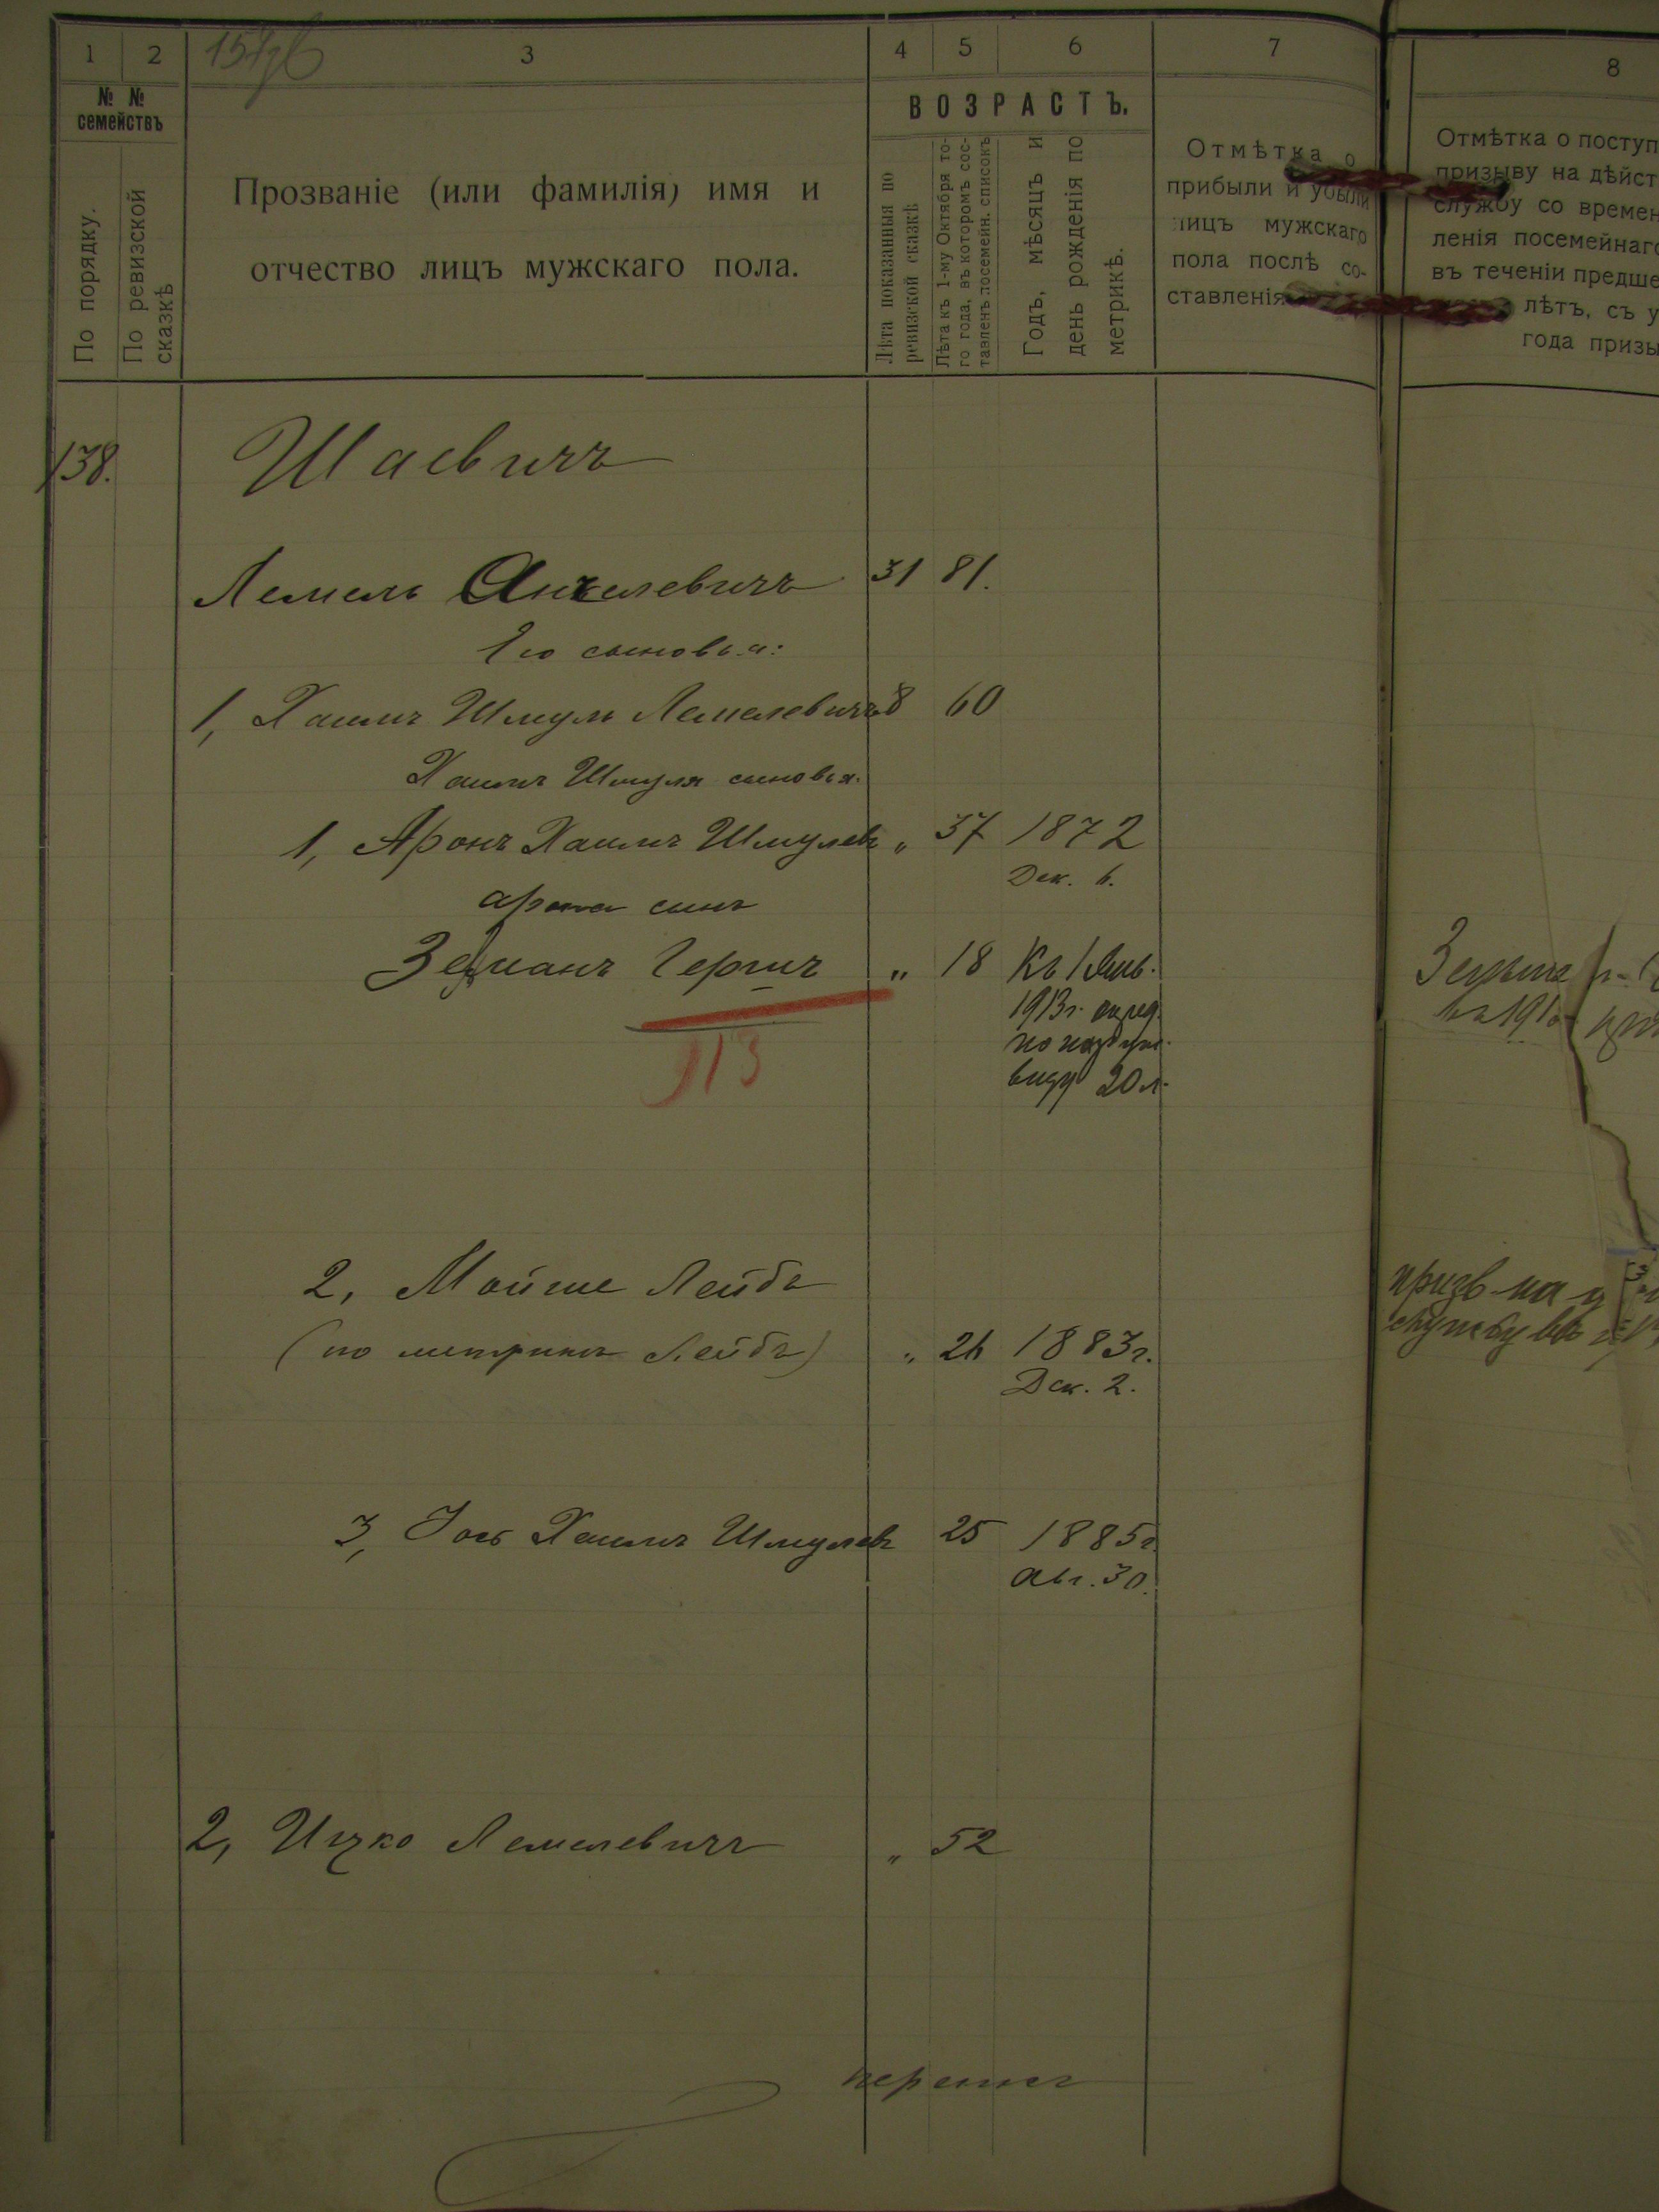 1 2 3 4 5 6 7 8
№ № семействъ
По порядку.
По ревизской сказкѣ
Прозваніе (или фамилія) имя и
отчество лицъ мужскаго пола.
ВОЗРАСТЪ.
Лѣта показанныя по
ревизской сказкѣ
Лѣта къ 1-му Октября то-
го года, въ которомъ сос-
тавленъ посемейн. списокъ
Годъ, мѣсяцъ и
день рожденія по
метрикѣ.
Отмѣтка о
прибыли и убыли
лицъ мужскаго
пола послѣ со-
ставленія
Отмѣтка о поступ
призыву на дѣйст
службу со времен
ленія посемейнаго
въ теченіи предше
лѣтъ, съ у
года призы
138. Шаевичъ
Лемель Анкелевичъ 31 81.
Его сыновья:
1, Хаимъ Шмуль Лемелевичъ 8 60
Хаимъ Шмуля сыновья.
1, Аронъ Хаимъ Шмулев " 37 1872
Дек. 6.
Арона сынъ
Зелманъ Гершъ " 18 Къ 1 Янв.
1913г. опред.
по наружн.
виду 20 л.
913
2, Мойше Лейба
(по метрикѣ Лейба) " 26 1883г.
Дек. 2.
3, Іось Хаимъ Шмулев 25 1885г.
Авг. 30.
2, Ицко Лемелевичъ " 52